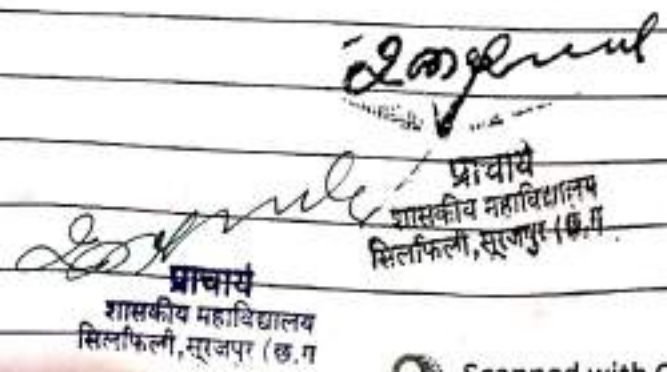 प्राचार्य
शासकीय महाविद्यालय
सिलफिली, सूरजपुर (छ.ग.
प्राचार्य
शासकीय महाविद्यालय
सिलफिली, सूरजपुर (छ.ग
Scanned with